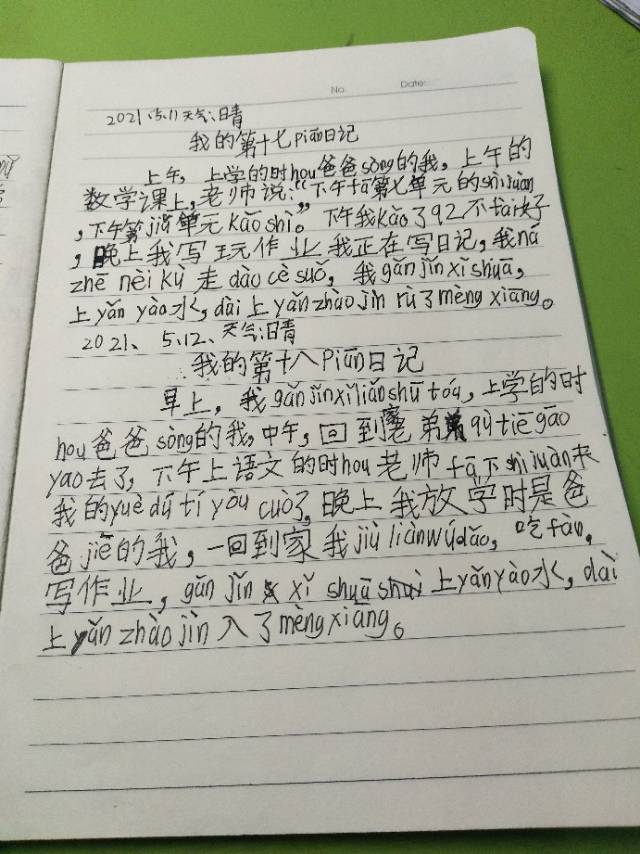 No.
Date:
2021.5.11 天气:晴
我的第十七Piān日记
上午,上学的时hou爸爸sòng的我,上午的
数学课上,老师说:"下午fā第七单元的shìjuàn
,下午第jiǔ单元kǎoshì。"下午我kǎo了92不tài好
,晚上我写玩作业我正在写日记,我ná
zhē nèi kù 走 dào cè suǒ,我gǎn jǐn xǐ shuā,
上yǎn yào水,dài上yǎn zhào jìn rù了mèng xiāng。
2021、5.12、天气:晴
我的第十八Piān日记
早上,我gǎn jǐn xǐ liǎn shū tóu,上学的时
hou爸爸sòng的我,中午,回到弟弟qù tiē gāo
yao去了,下午上语文的时hou老师fā下shì juàn来
我的yuè dú tí yòu cuò了,晚上我放学时是爸
爸jiē的我,一回到家我jiù liàn wú dǎo,吃fàn,
写作业,gǎn jǐn xǐ shuā 上yǎn yào水,dài
上yǎn zhào jìn入了mèng xiāng。